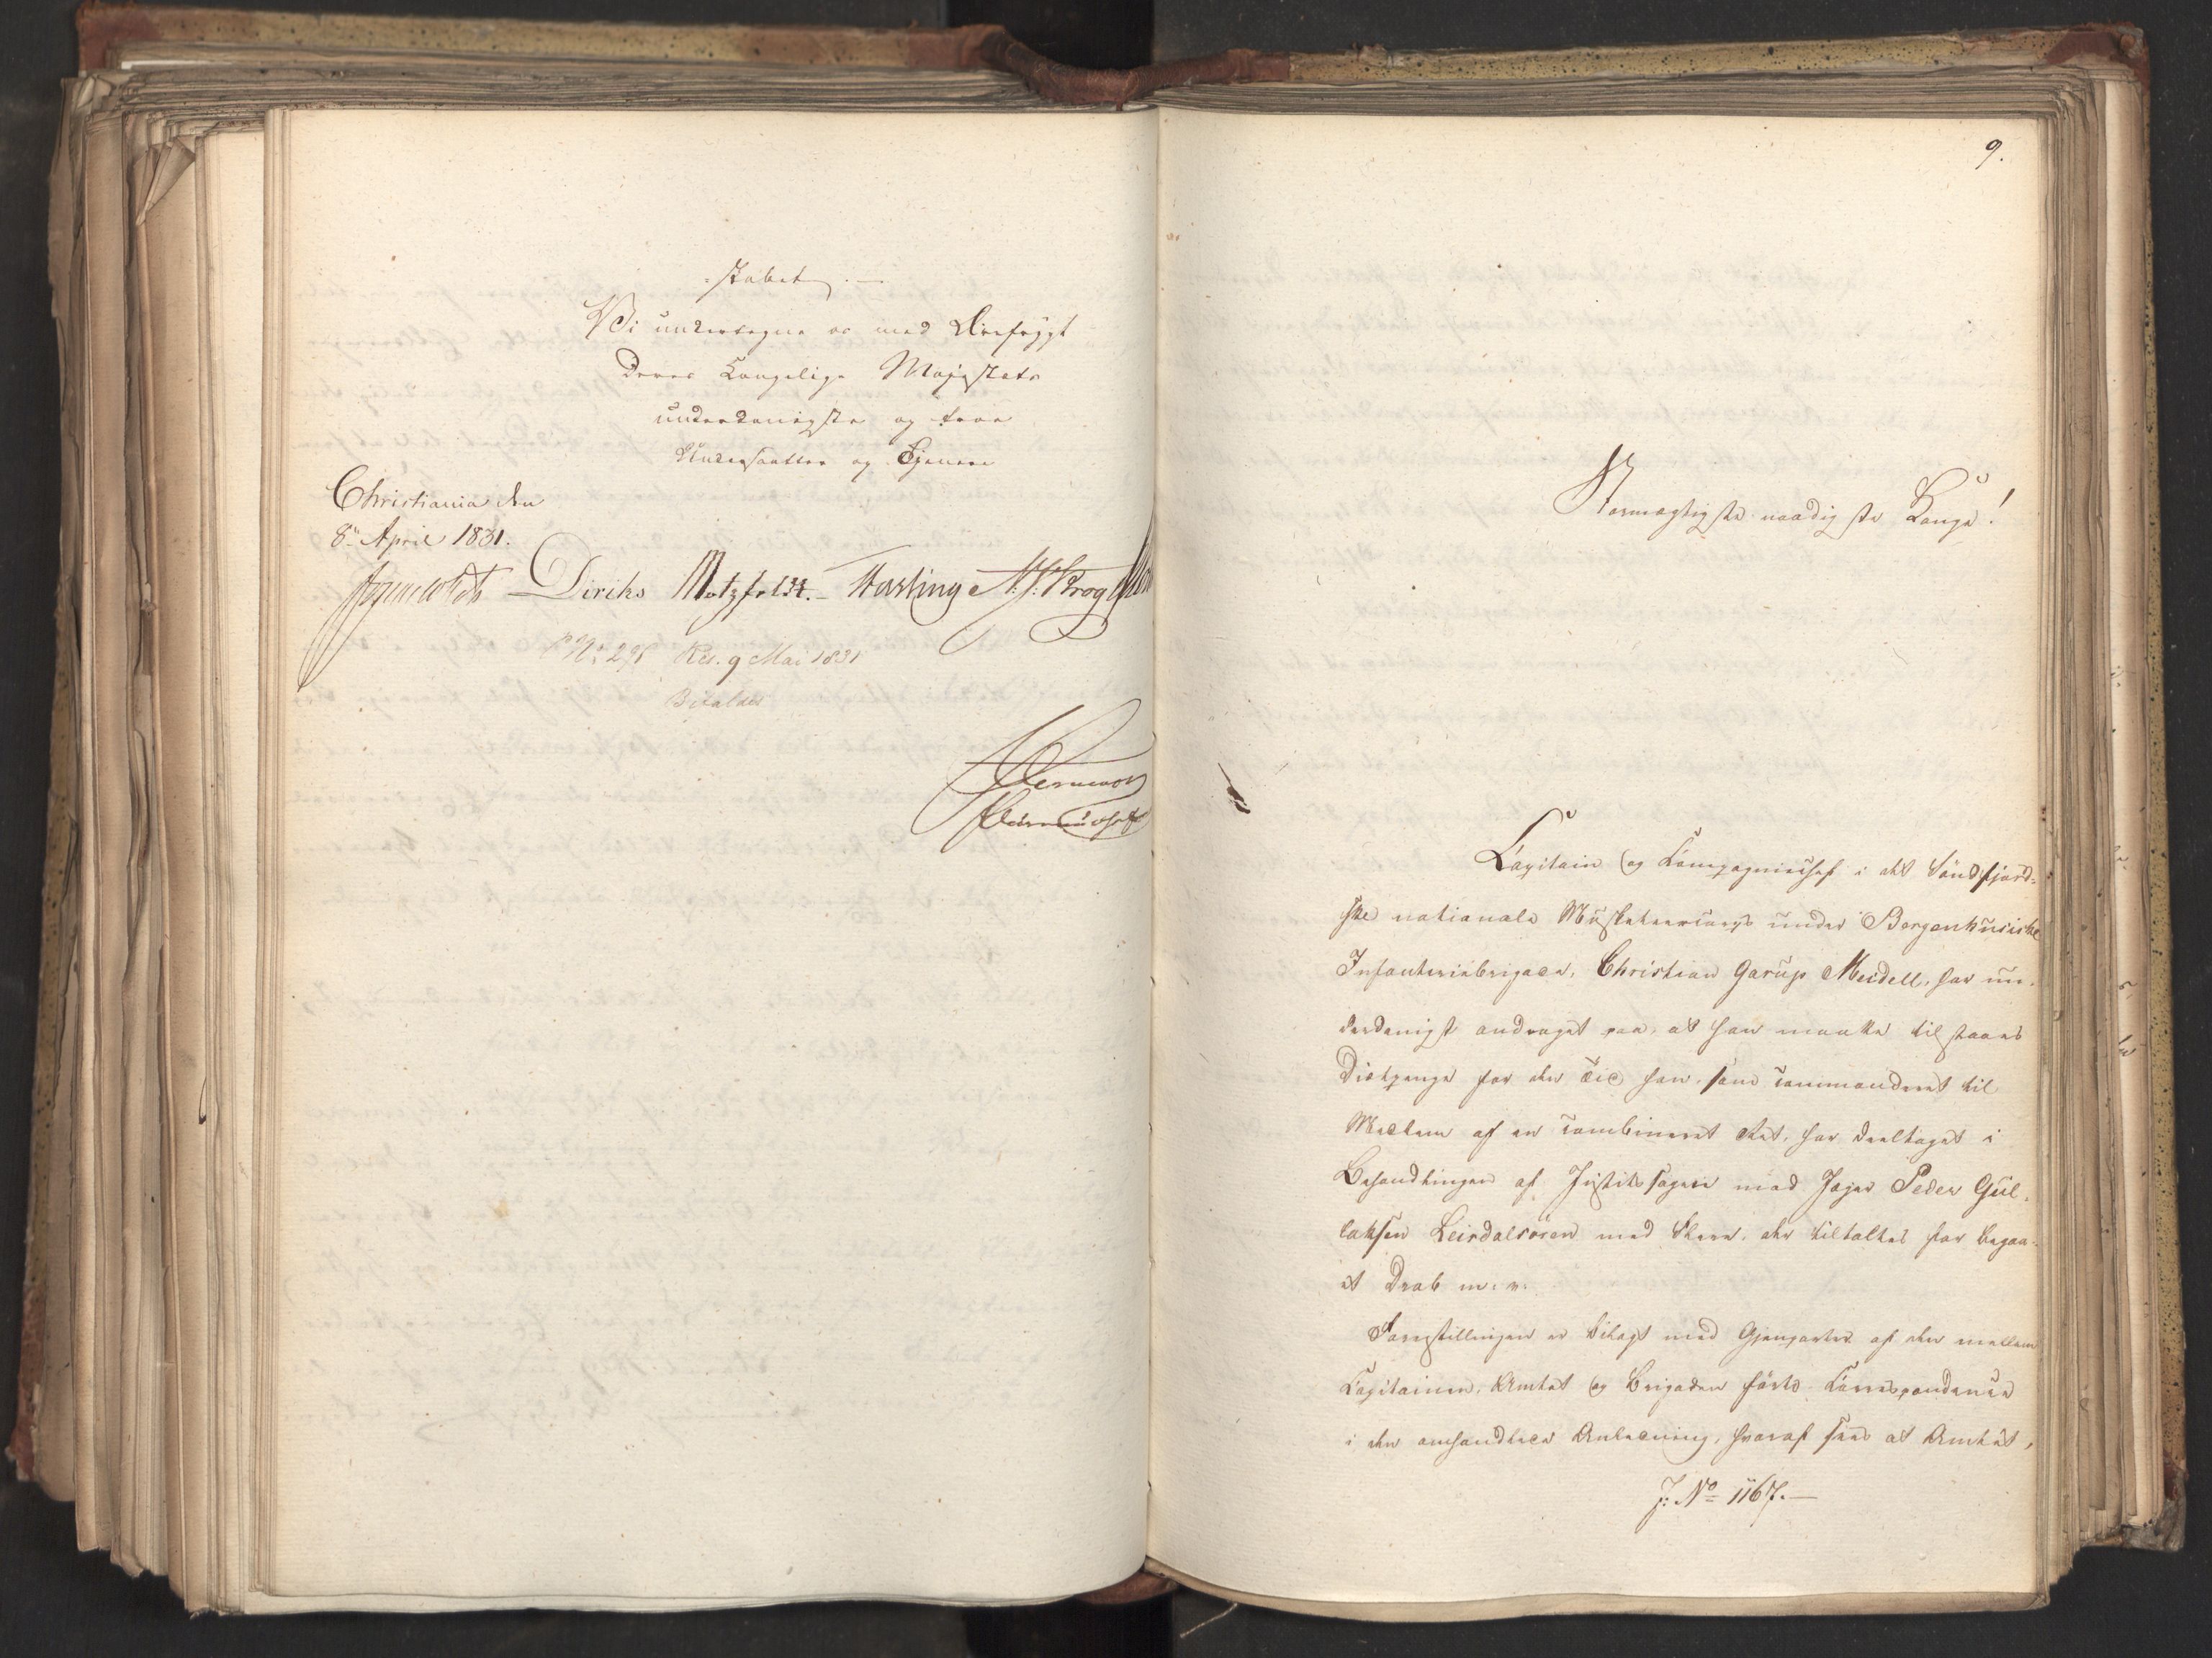 =skabet. —
Vi undertegne os med Ærefrygt
Deres Kongelige Majestæts
underdanigste og troe
Undersaatter og Tjenere
Christiania den
8de April 1831.
Diriks Motzfeldt. Fasting N. J. Krog
No 295 Res. 9 Mai 1831
Bifaldes
9.
Stormægtigste naadigste Konge!
Capitain og Compagniechef i det Söndfjord-
ske nationale Musketeercorps under Bergenhusiske
Infanteriebrigade, Christian Garup Meidell, har un-
derdanigst andraget paa, at han maatte tilstaaes
Diætpenge for den Tid han, som commanderet til
Medlem af en combineret Ret, har deeltaget i
Behandlingen af Justitssagen mod Jæger Peder Gul-
laksen Leirdalsören med Flere, der tiltaltes for begaa-
et Drab m. v.
Forestillingen er bilagt med Gjenparter af den mellem
Capitainen, Amtet og Brigaden förte Correspondence
i den omhandlede Anledning, hvoraf sees at Amtet,
J: No 1167. —